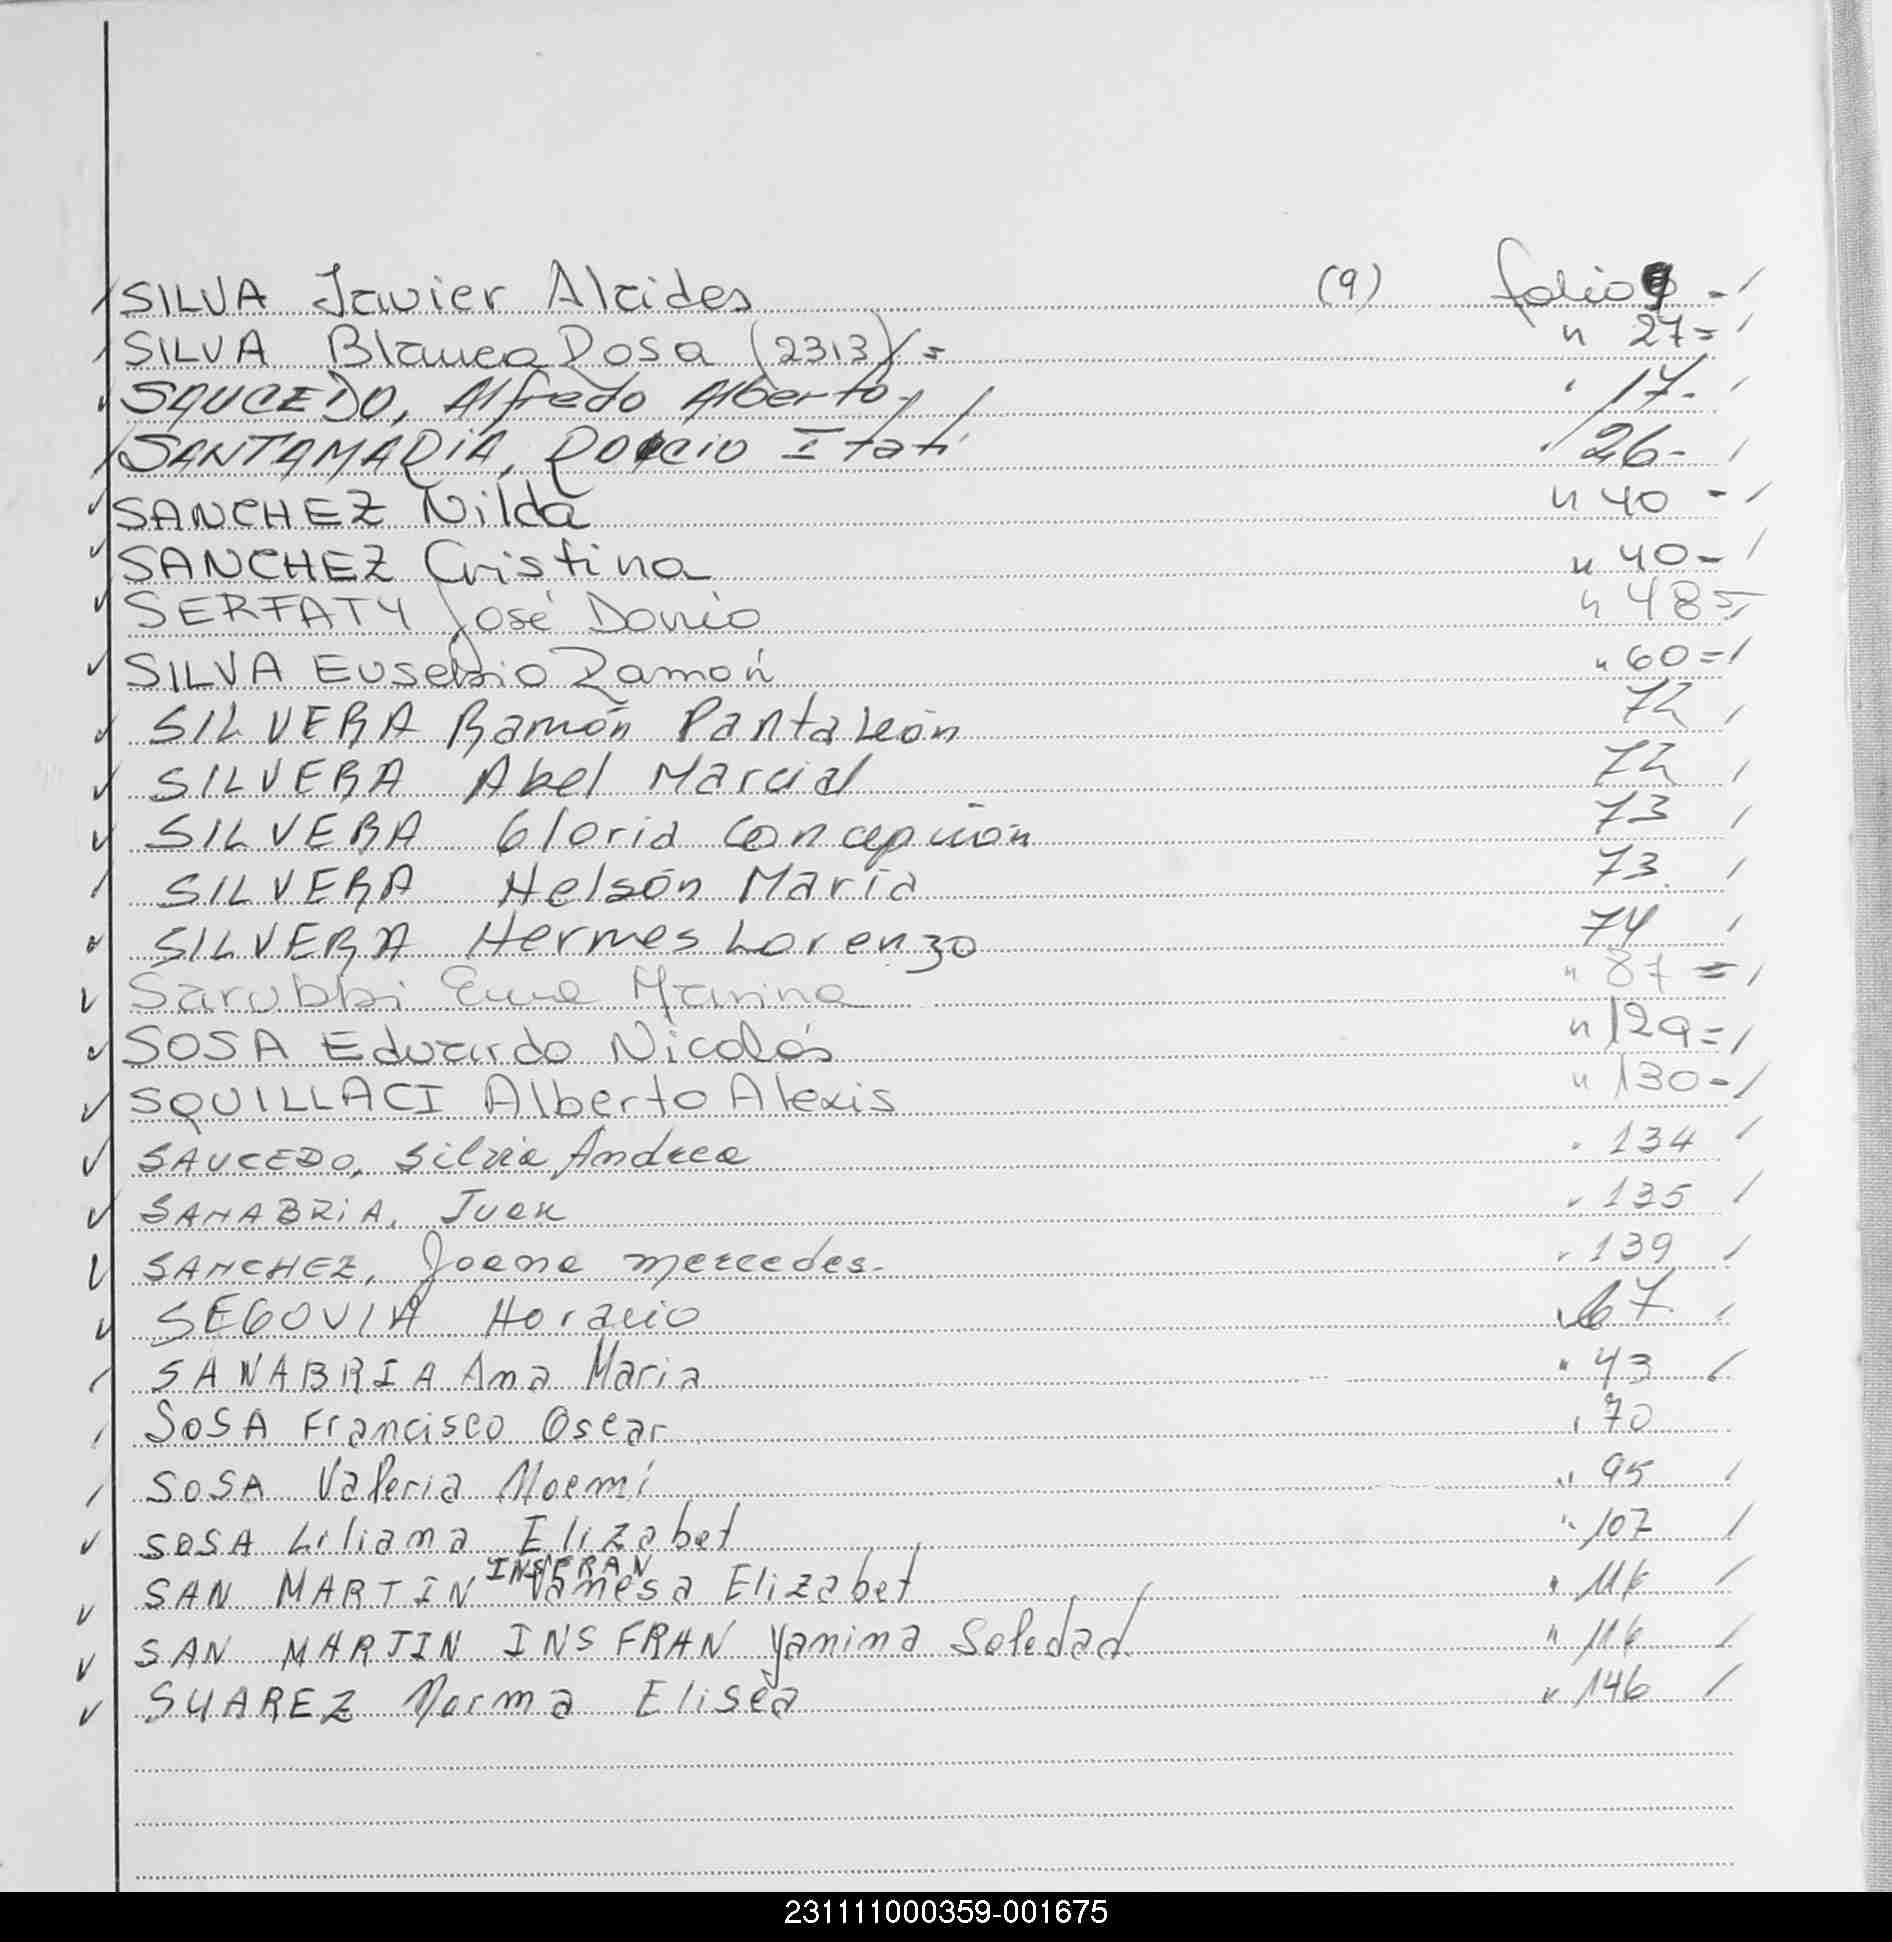 SILVA Javier Alcides (9) folio 9 -
SILVA Blanca Rosa (2313) = " 27=
SAUCEDO, Alfredo Alberto. " 17-
SANTAMARIA, Rocio Itatí " 26-
SANCHEZ Nilda " 40 -
SANCHEZ Cristina " 40-
SERFATY José " 48=
SILVA Eusebio Ramón " 60=
SILVERA Ramón Pantaleón 72
SILVERA Abel Marcial 72
SILVERA Gloria Concepción 73
SILVERA Nelsón María 73
SILVERA Hermes Lorenzo 74
Sarubbi Marina " 87 =
SOSA Eduardo Nicolás " 129=
SQUILLACI Alberto Alexis " 130-
SAUCEDO, Silvia Andrea " 134
SANABRIA, Juan " 135
SANCHEZ, Joana mercedes- " 139
SEGOVIA Horacio " 67
SANABRIA Ana Maria " 43
SOSA Francisco Oscar " 70
SOSA Valeria Noemí " 95
SOSA Liliana Elizabet " 107
SAN MARTIN INSFRAN Vanesa Elizabet " 116
SAN MARTIN INSFRAN Yanina Soledad " 116
SUAREZ Norma Elisea " 146
231111000359-001675